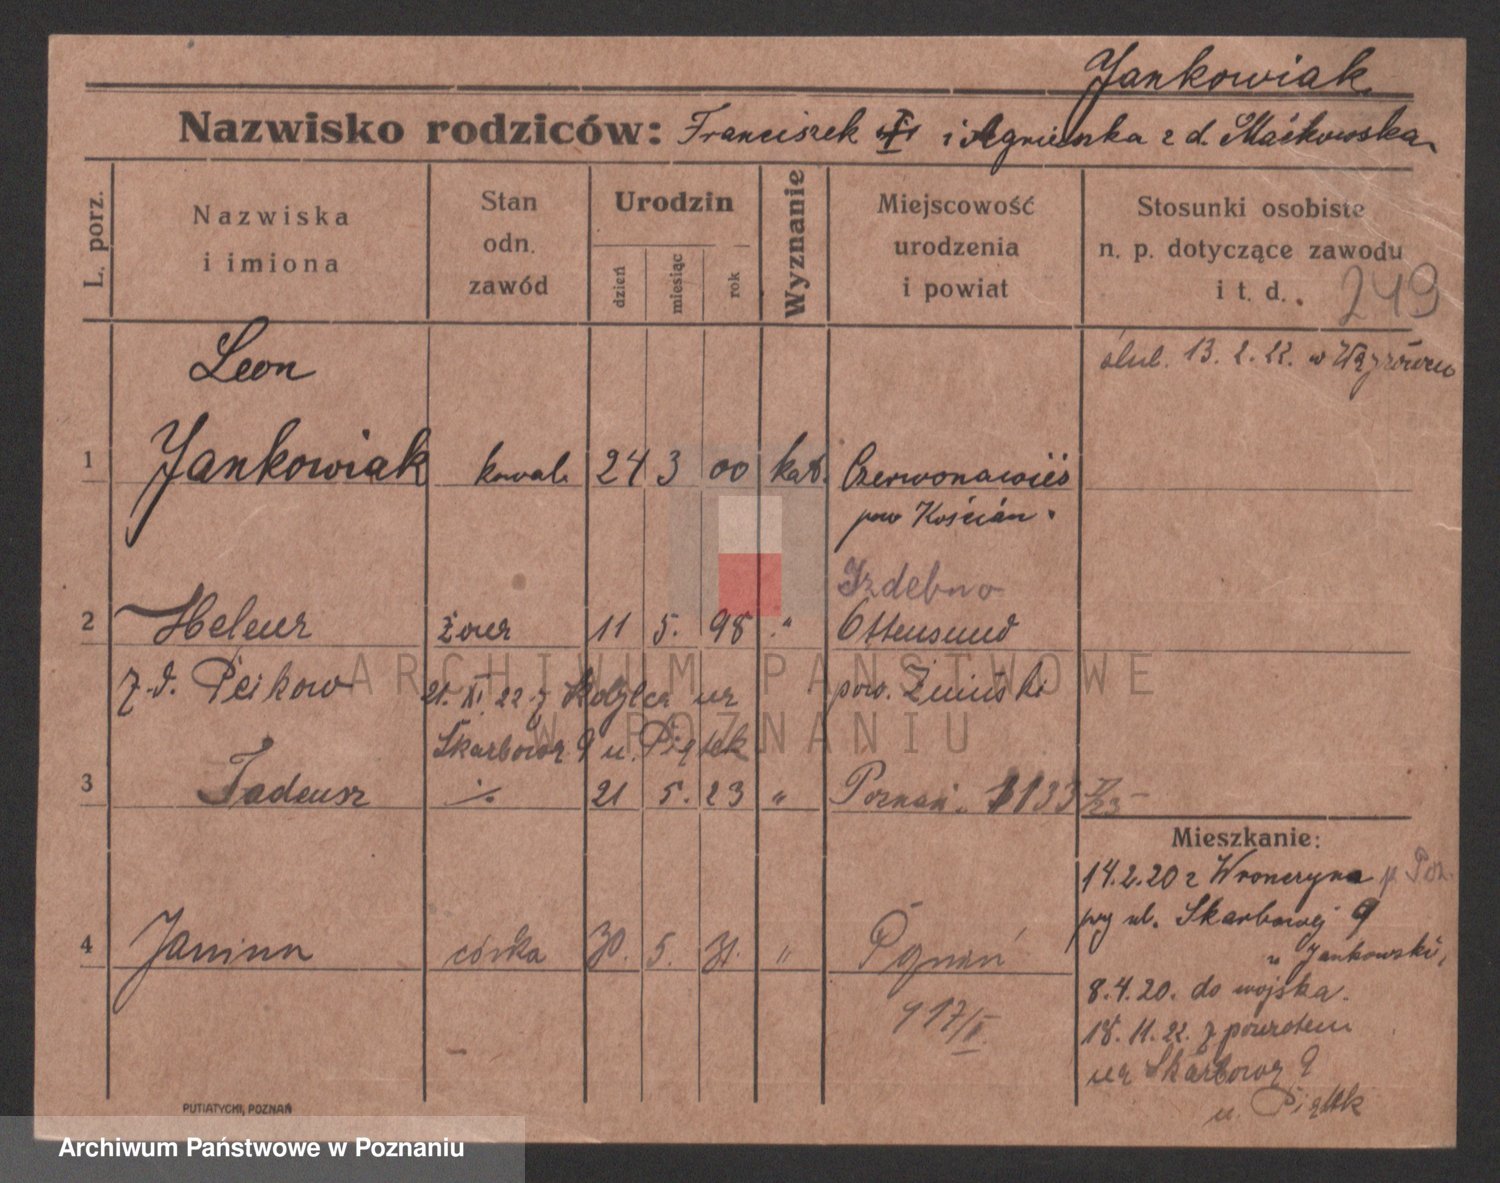 Jankowiak
Nazwisko rodziców: Franciszek i Agnieszka z d. Maćkowska
L. porz.
Nazwiska
i imiona
Stan
odn.
zawód
Urodzin
dzień
miesiąc
rok
Wyznanie
Miejscowość
urodzenia
i powiat
Stosunki osobiste
n. p. dotyczące zawodu
i t. d.
249
ślub. 13. 2. 22. w Wągrówcu
1
Leon
Jankowiak
kowal
24 3 00 kat.
Czerwonawieś
pow Kościan
2
Helena
z. d. Peikow
żona
11 5. 98 "
Izdebno
Ottensund
pow. Żniński
21. XI. 22 z Kołylca na
Skarbowa 9 u. Piątek
3
Tadeusz
·/·
21 5. 23 "
Poznań 1133 V/23
4
Janina
córka
30. 5. 31. "
Poznań
917/II
Mieszkanie:
14.2.20 z Wronczyna p. Poz.
przy ul. Skarbowej 9
u Jankowski,
8.4.20. do wojska.
18. 11. 22. z powrotem
na Skarbowa 9
u. Piątek
PUTIATYCKI, POZNAŃ
ARCHIWUM PAŃSTWOWE
W POZNANIU
Archiwum Państwowe w Poznaniu